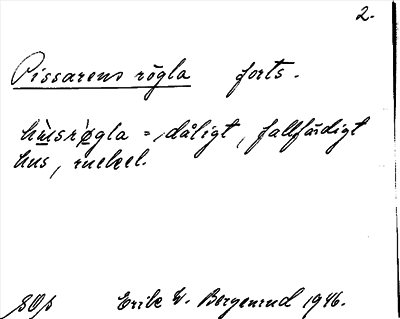 2.
Pissarens rögla forts.
hùsrø̀gla = dåligt, fallfärdigt
hus, ruckel.
Erik W. Bergenrud 1946.